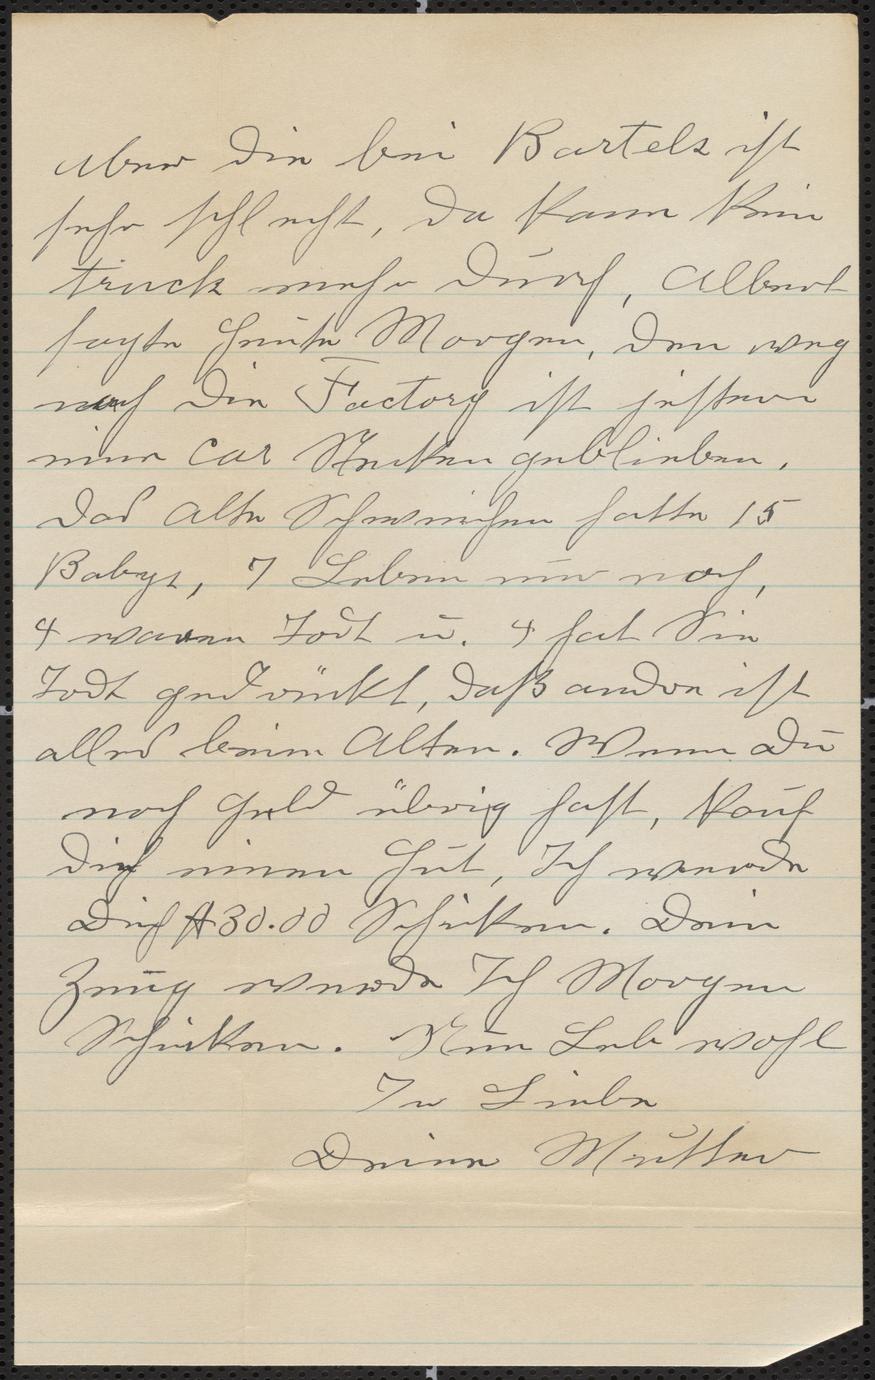 aber die bei Bartels ist
sehr schlecht, da kann kein
truck mehr durch, Albert
sagte heute Morgen, den weg
nach die Factory ist jestern
eine Car Stecken geblieben.
Das Alte Schweinchen hatte 15
Babys, 7 Leben nur noch,
4 waren Todt u. 4 hat Sie
Todt gedrückt, daß andre ist
alles beim Alten. Wenn Du
noch Geld übrig hast, kauf
Dich einen Hut, Ich werde
Dich $30.00 Schicken. Dein
Zeug werde Ich Morgen
Schicken. Nun Leb wohl
In Liebe
Deine Mutter